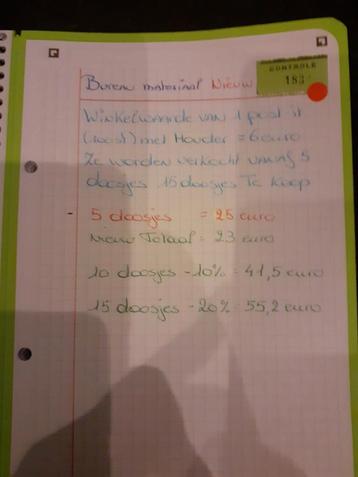 CONTROLE
183
Bureau materiaal Nieuw
Winkelwaarde van 1 post it
(roest) met Houder = 6 euro
Ze worden verkocht vanaf 5
doosjes 15 doosjes Te koop
- 5 doosjes = 25 euro
Nieuw Totaal = 23 euro
10 doosjes -10% = 41,5 euro
15 doosjes -20% = 55,2 euro